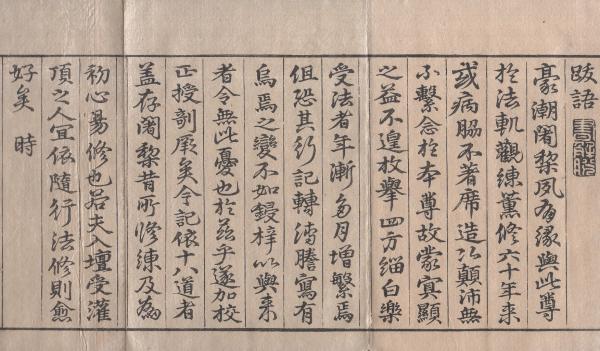 跋語
豪潮闍黎夙有緣與此尊
於法軌觀練薰修六十年来
或病脇不著席造次顛沛無
不繫念於本尊故蒙冥顯
之益不遑枚舉四方緇白樂
受法者年漸多月增繁焉
但恐其行記轉傳謄寫有
烏焉之變不如鋟梓以與来
者令無此憂也於茲乎遂加校
正授剞厥矣今記依十八道者
蓋存闍黎昔所修練及為
初心易修也若夫入壇受灌
頂之人宜依隨行法修則愈
好矣 時